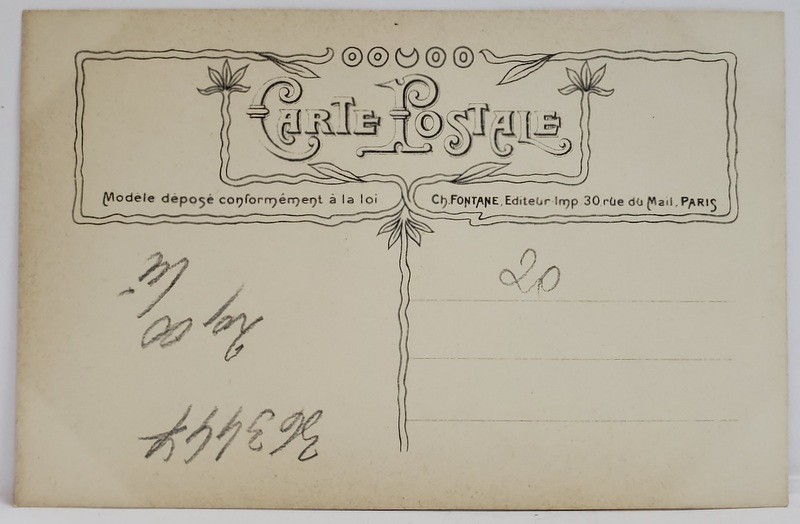 CARTE POSTALE
Modèle déposé conformément à la loi
Ch. FONTANE, Editeur-Imp 30 rue du Mail, PARIS
20
lei
363447